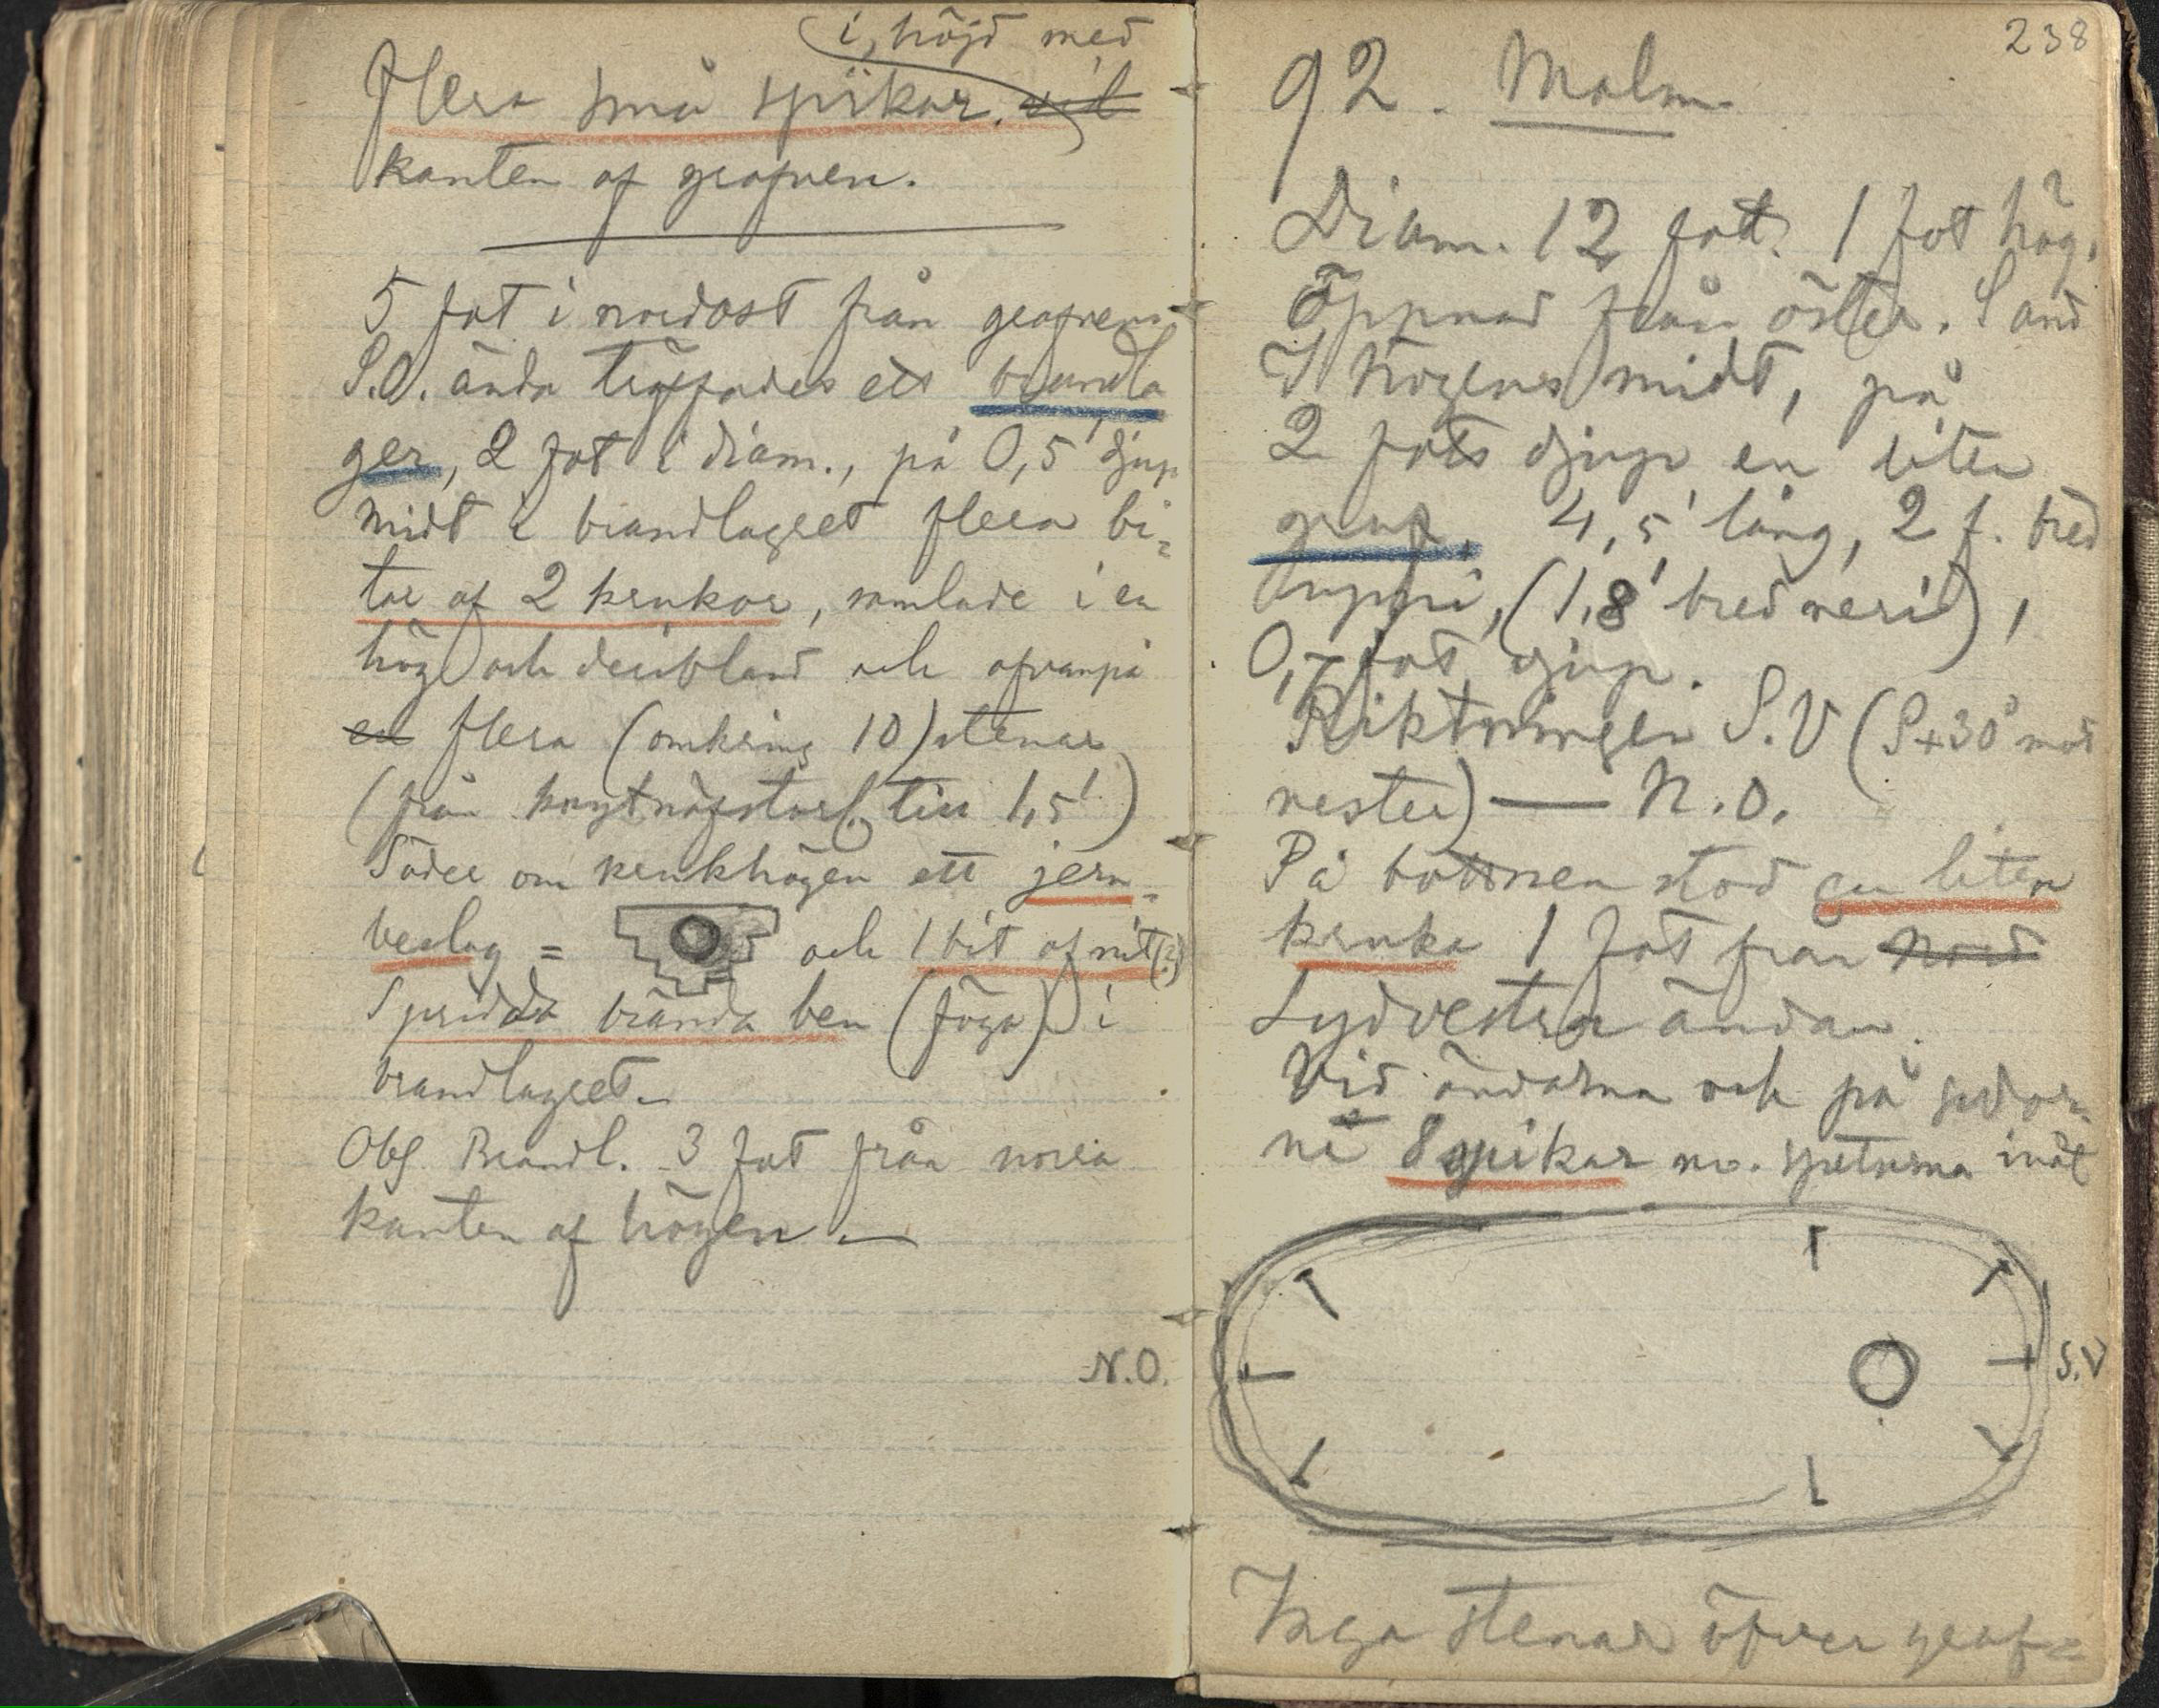 i höjd med
flera små spikar. vid
kanten af grafven.
5 fot i nordost från grafvens
S.O. ända träffades ett brandla
ger, 2 fot i diam., på 0,5' djup
midt i brandlagret flera bi=
tar af 2 krukor, samlade i en
hög och deribland och ofvanpå
en flera (omkring 10) stenar
(från knytnäfstorl. till 1,5')
Söder om krukhögen ett jern-
beslag = och 1 bit af nit(?)
Spridda brända ben (föga) i
brandlagret.
Obs. Brandl. 3 fot från norra
kanten af högen —
N.O.
238
92. Malm
Diam. 12 fot. 1 fot hög.
Öppnad från öster. Sand
I högens midt, på
2 fots djup en liten
graf, 4,5' lång, 2 f. bred
uppi, (1,8' bred neri),
0,7 fot djup.
Riktningen S.V (S+30° mot
vester) — N.O.
På bottnen stod en liten
kruka 1 fot från nord
sydvestra ändan.
Vid ändarna och på sidor=
na 8 spikar m. spetsarna inåt
S.V
Inga stenar öfver graf=